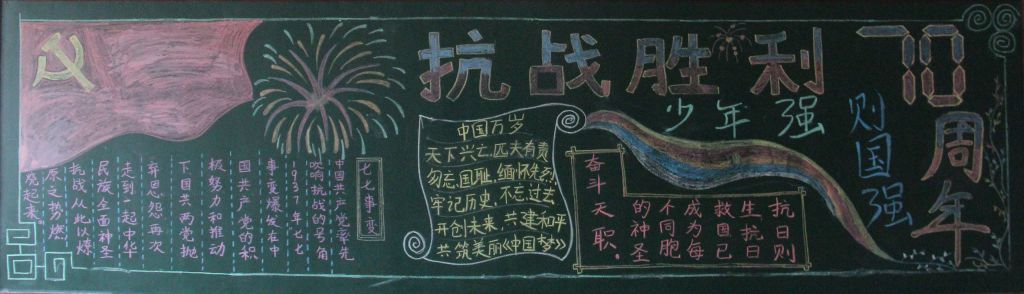 抗战胜利70周年
少年强
则国强
七七事变
中国共产党率先
吹响抗战的号角
1937年七七
事变爆发在中
国共产党的积
极努力和推动
下国共两党抛
弃恩怨再次
走到一起中华
民族全面神圣
抗战从此以燎
原之势燃
烧起来
中国万岁
天下兴亡,匹夫有责
勿忘国耻,缅怀先烈
牢记历史、不忘过去
开创未来,共建和平
共筑美丽《中国梦》
抗日则
生抗日
救国已
成为每
不同胞
的神圣
奋斗天职。